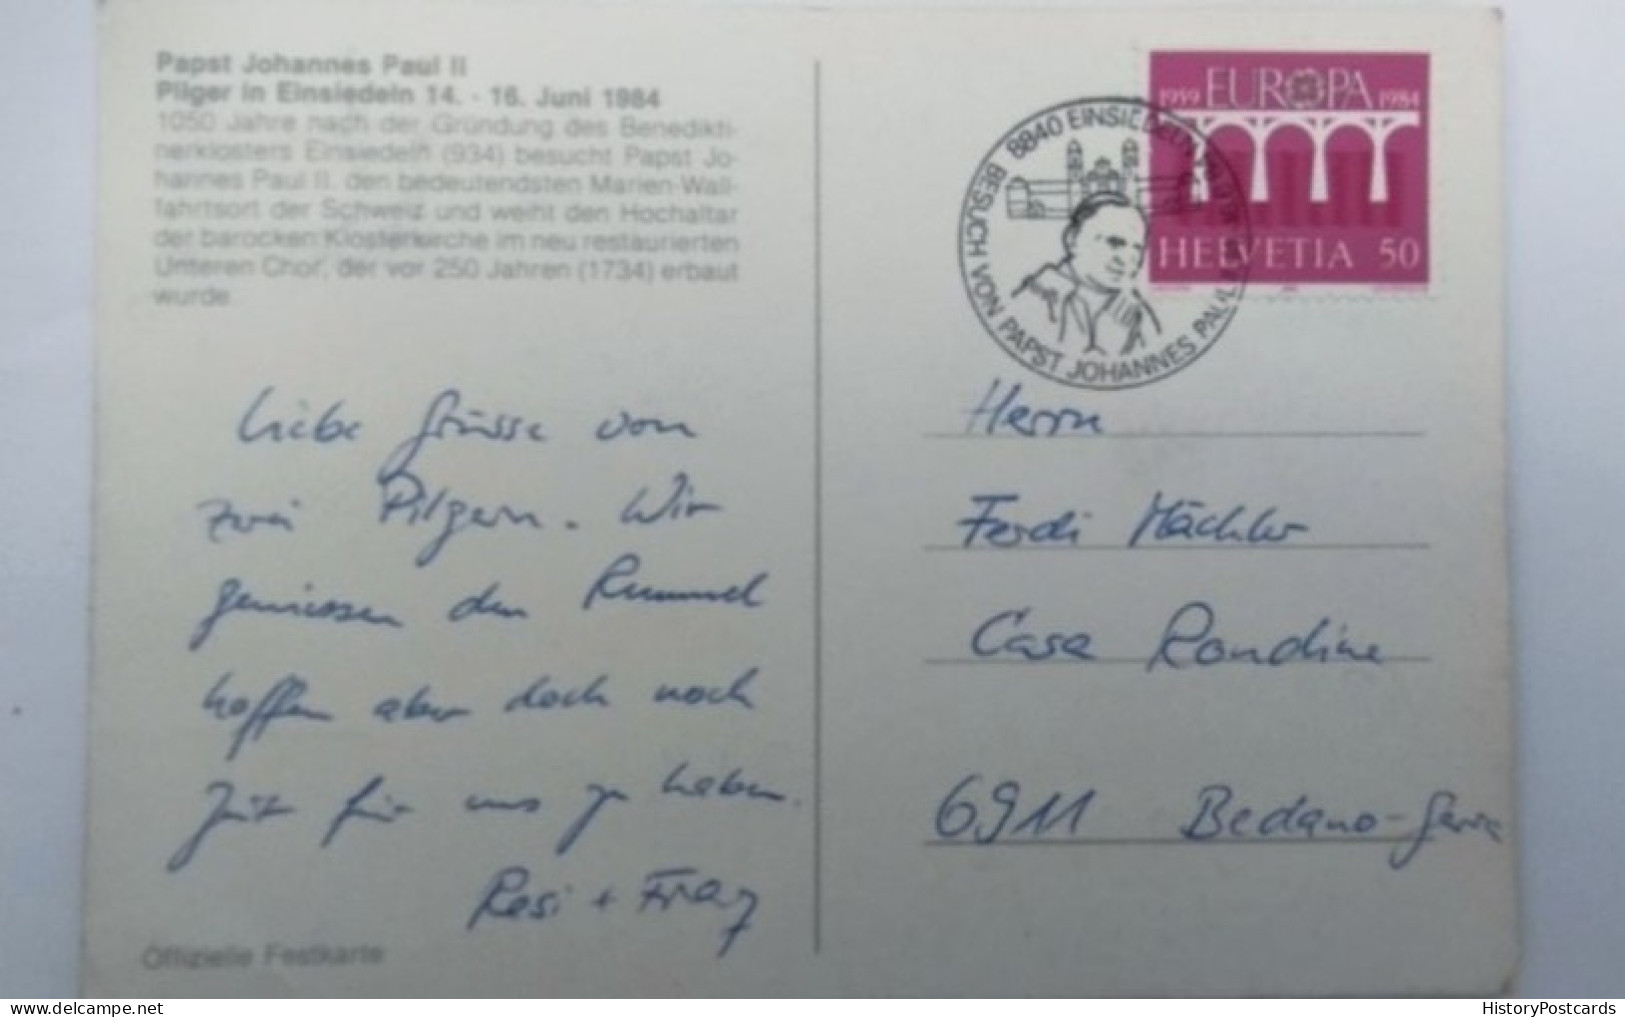 Papst Johannes Paul II
Pilger in Einsiedeln 14. - 16. Juni 1984
1050 Jahre nach der Gründung des Benedikti-
nerklosters Einsiedeln (934) besucht Papst Jo-
hannes Paul II. den bedeutendsten Marien-Wall-
fahrtsort der Schweiz und weiht den Hochaltar
der barocken Klosterkirche im neu restaurierten
Unteren Chor, der vor 250 Jahren (1734) erbaut
wurde.
Liebe Grüsse von
zwei Pilgern. Wir
geniessen den Rummel
hoffen aber doch noch
Zeit für uns zu haben.
Resi + Franz
Offizielle Festkarte
1959 EUROPA 1984
HELVETIA 50
8840 EINSIEDELN
BESUCH VON PAPST JOHANNES PAUL
Herrn
Ferdi Mächler
Casa Rondine
6911 Bedano-
HistoryPostcards